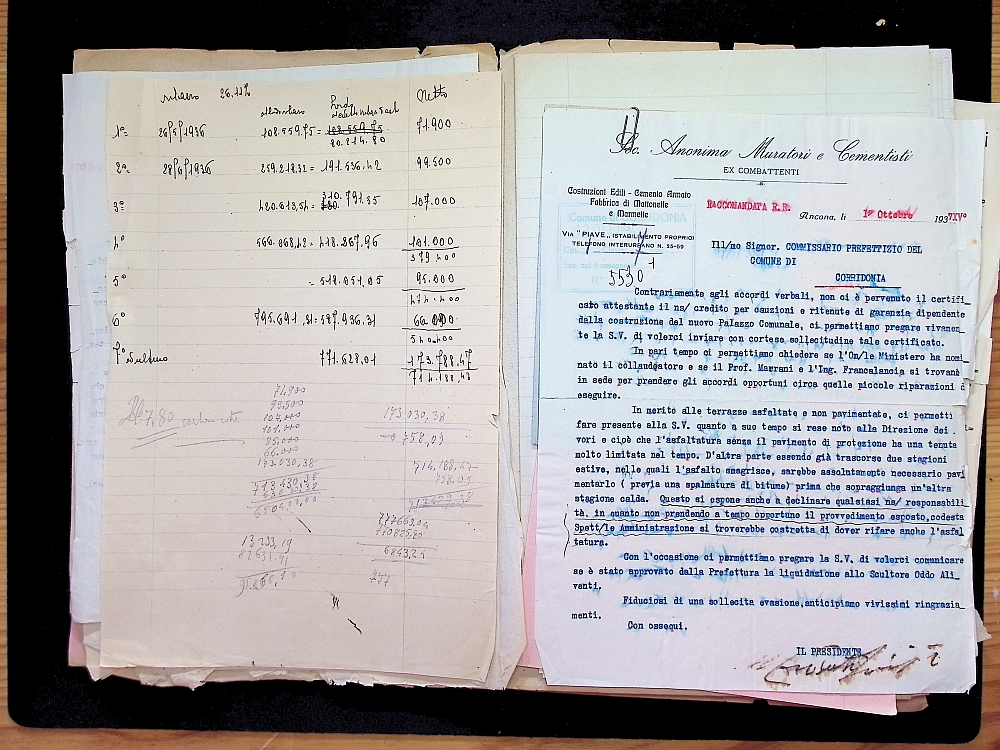 ribasso 26.12%
Netto
1ª 26/5/1936 108.559.75 = 108.559.75 71.900
80.214.80
2ª 28/8/1936 259.218.32 = 191.536.42 99.500
3ª 420.613,54 = 310.791.85 107.000
4ª 566.868,42 = 418.867,96 101.000
379 400
5ª = 518.054,05 95.000
474.400
6ª 795.691,31 = 587.936.31 66.000
540400
7ª 771.628,01 173.788,47
714.188,47
71,900
99,500
107,000
101,000
95,000
66,000
173,030,38
173 030.38
758,09
714,188,47
6843,21
13233,19
277
Soc. Anonima Muratori e Cementisti
EX COMBATTENTI
Costruzioni Edili - Cemento Armato
Fabbrica di Mattonelle
e Marmelle
VIA "PIAVE" (STABILIMENTO PROPRIO)
TELEFONO INTERURBANO N. 33-59
5530
RACCOMANDATA R.R.
Ancona, li 1° Ottobre 1937 XV°
Ill/no Signor. COMMISSARIO PREFETTIZIO DEL
COMUNE DI
CORRIDONIA
Contrariamente agli accordi verbali, non ci è pervenuto il certifi_
cato attestante il ns/ credito per cauzioni e ritenute di garanzia dipendente
dalla costruzione del nuovo Palazzo Comunale, ci permettiamo pregare vivamen_
te la S.V. di volerci inviare con cortese sollecitudine tale certificato.
In pari tempo ci permettiamo chiedere se l'On/le Ministero ha nomi_
nato il collaudatore e se il Prof. Marrani e l'Ing. Francalancia si trovano
in sede per prendere gli accordi opportuni circa quelle piccole riparazioni d
eseguire.
In merito alle terrazze asfaltate e non pavimentate, ci permetti
fare presente alla S.V. quanto a suo tempo si rese noto alla Direzione dei
vori e cioè che l'asfaltatura senza il pavimento di protezione ha una tenuta
molto limitata nel tempo. D'altra parte essendo già trascorse due stagioni
estive, nelle quali l'asfalto smagrisce, sarebbe assolutamente necessario pavi
mentarlo ( previa una spalmatura di bitume) prima che sopraggiunga un'altra
stagione calda. Questo si espone anche a declinare qualsiasi ns/ responsabili_
tà, in quanto non prendendo a tempo opportuno il provvedimento esposto,codesta
Spett/le Amministrazione si troverebbe costretta di dover rifare anche l'asfal_
tatura.
Con l'occasione ci permettiamo pregare la S.V. di volerci comunicare
se è stato approvato dalla Prefettura la liquidazione allo Scultore Oddo Ali_
venti.
Fiduciosi di una sollecita evasione,anticipiamo vivissimi ringrazia_
menti.
Con ossequi.
IL PRESIDENTE